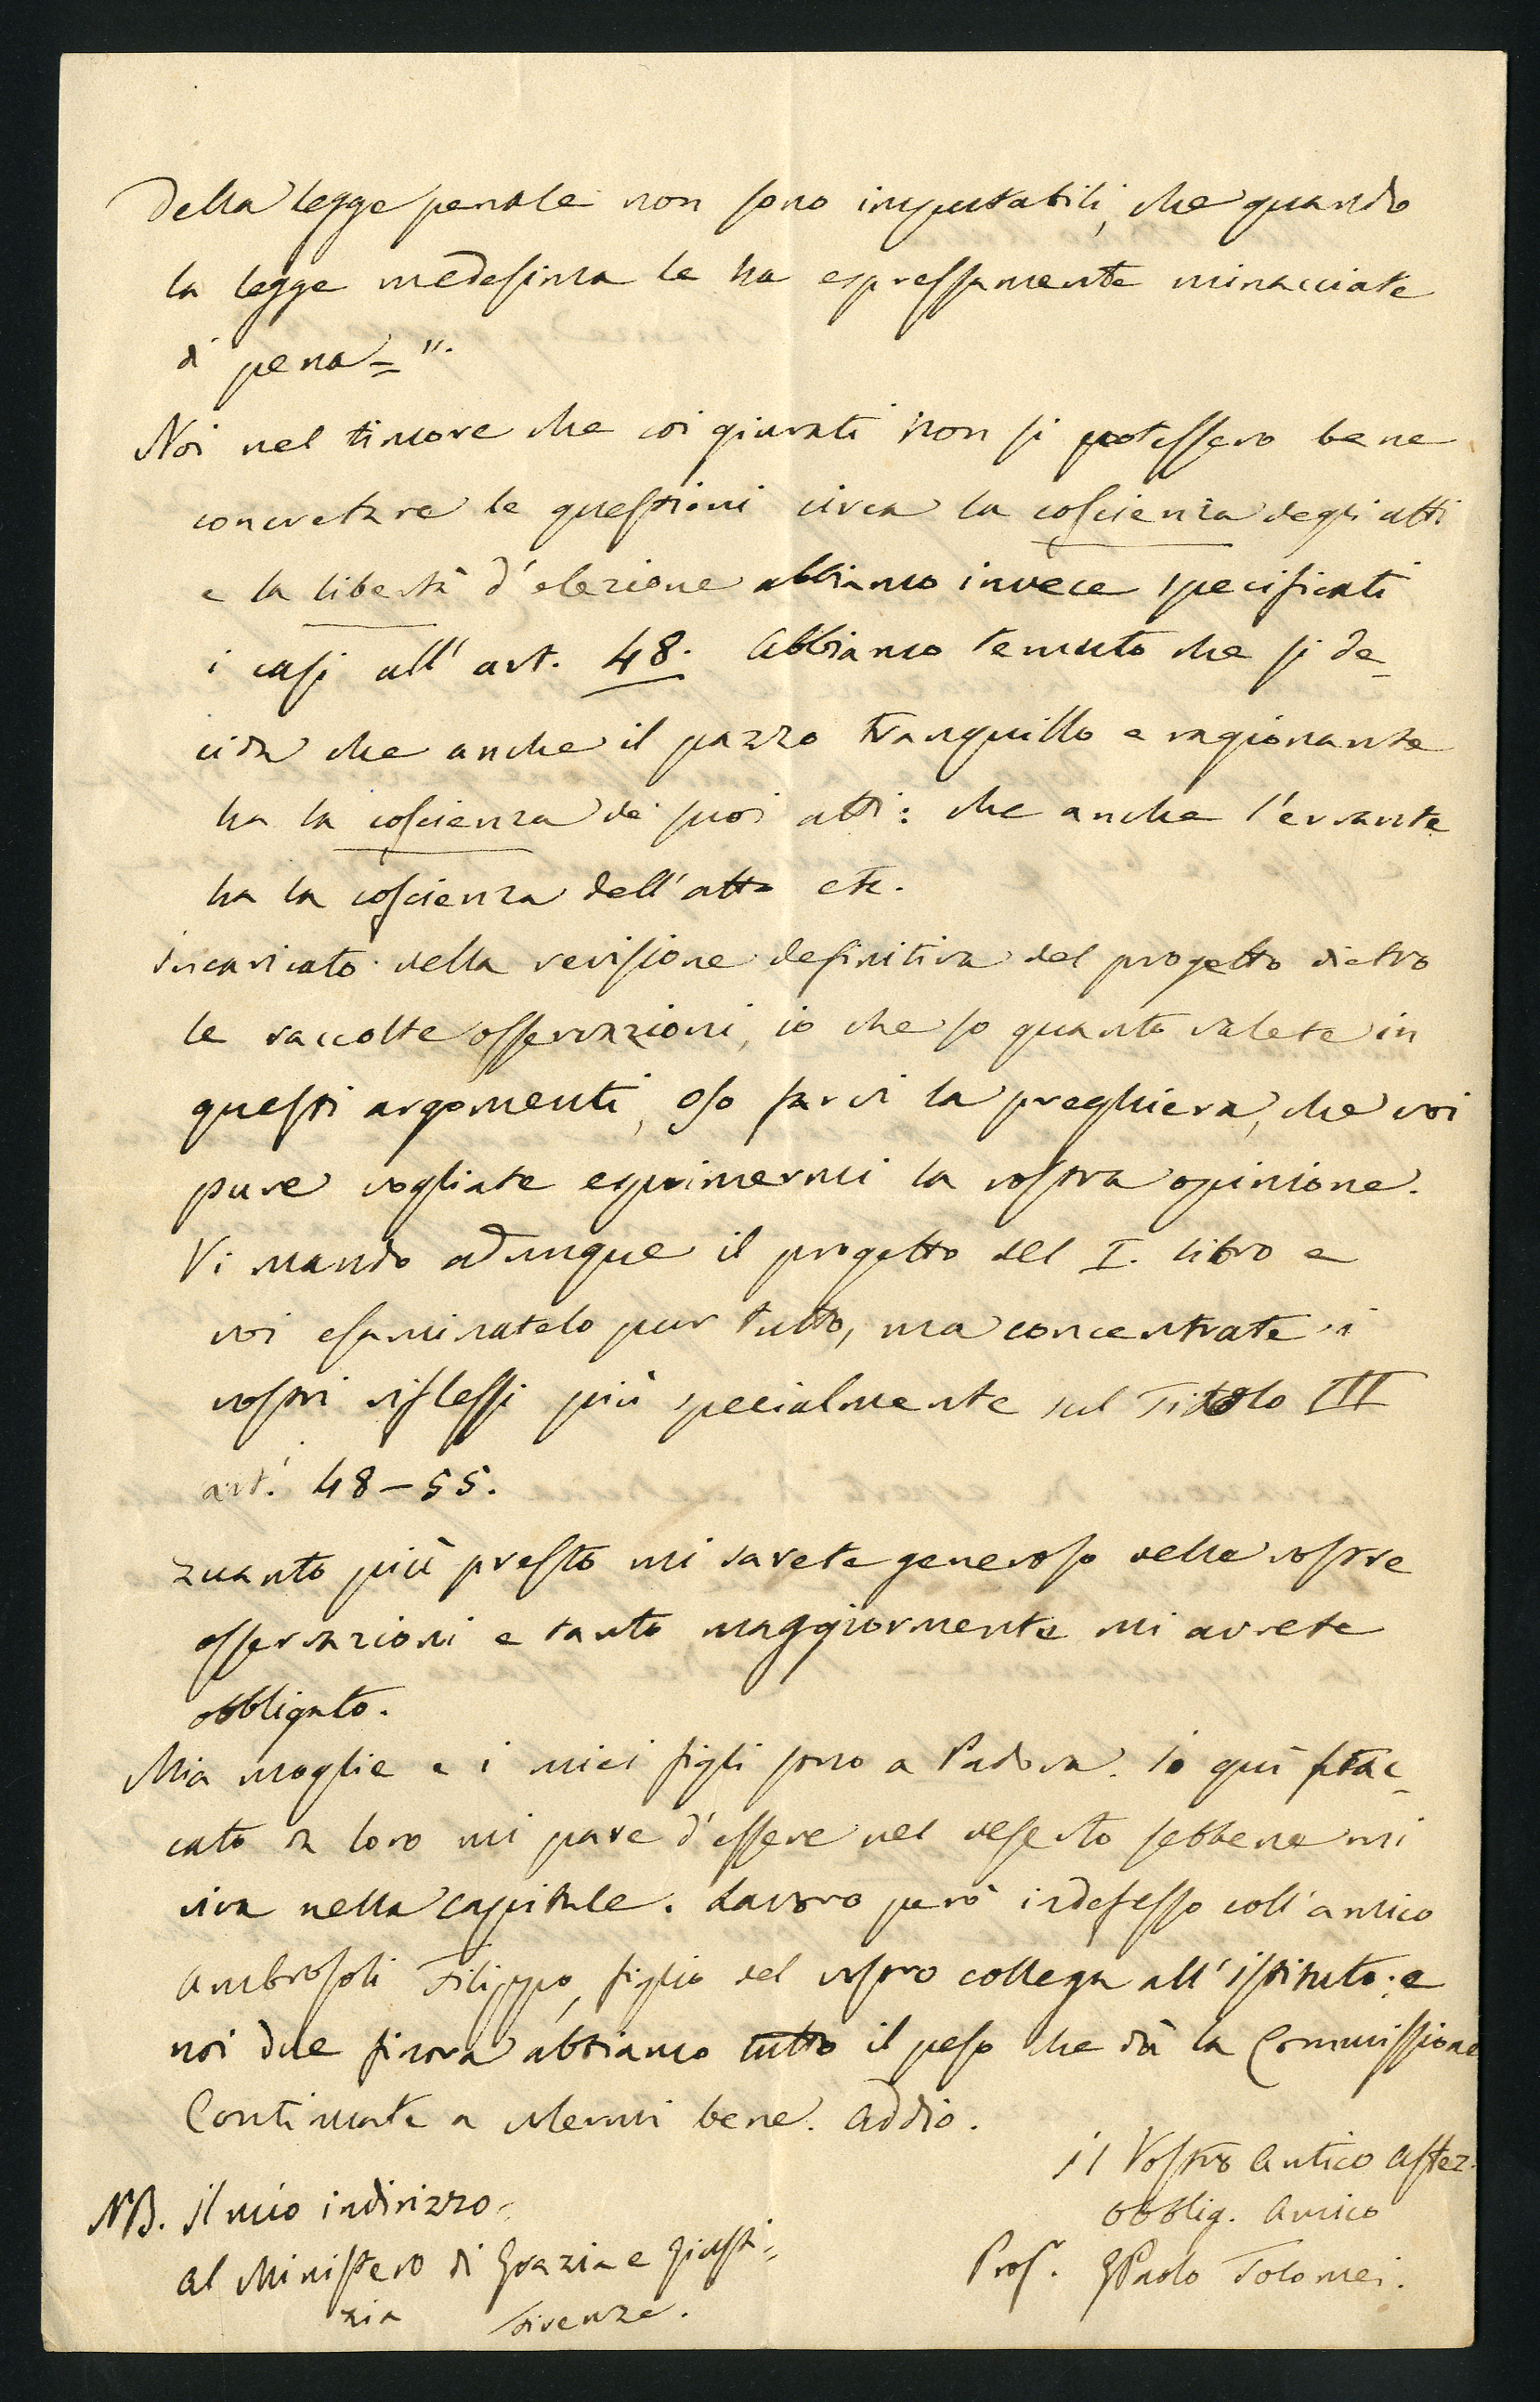 della legge penale non sono imputabili, che quando
la legge medesima le ha espressamente minacciate
di pena=".
Noi nel timore che coi giurati non si potessero bene
concretare le questioni circa la coscienza degli atti
e la libertà d'elezione abbiamo invece specificati
i casi all'art. 48. Abbiamo temuto che si de-
cida che anche il pazzo tranquillo e ragionante
ha la coscienza de' suoi atti: che anche l'errante
ha la coscienza dell'atto etc.
Incaricato della revisione definitiva del progetto dietro
le raccolte osservazioni, io che so quanto valete in
questi argomenti, oso farvi la preghiera, che voi
pure vogliate esprimermi la vostra opinione.
Vi mando adunque il progetto del I. libro e
voi esaminatelo pur tutto, ma concentrate i
vostri riflessi più specialmente sul Titolo III
art.i 48-55.
Quanto più presto mi sarete generoso delle vostre
osservazioni e tanto maggiormente mi avrete
obbligato.
Mia moglie e i miei figli sono a Padova. Io quì stac-
cato da loro mi pare d'essere nel deserto sebbene mi
viva nella capitale. Lavoro però indefesso coll'amico
Ambrosoli Filippo, figlio del vostro collega all'istituto: e
noi due finora abbiamo tutto il peso che dà la Commissione
Continuate a volermi bene. Addio.
Il Vostro Antico affez.
obblig. Amico
Prof. GPaolo Tolomei.
NB. Il mio indirizzo=
al Ministero di Grazia e Giusti=
zia Firenze.